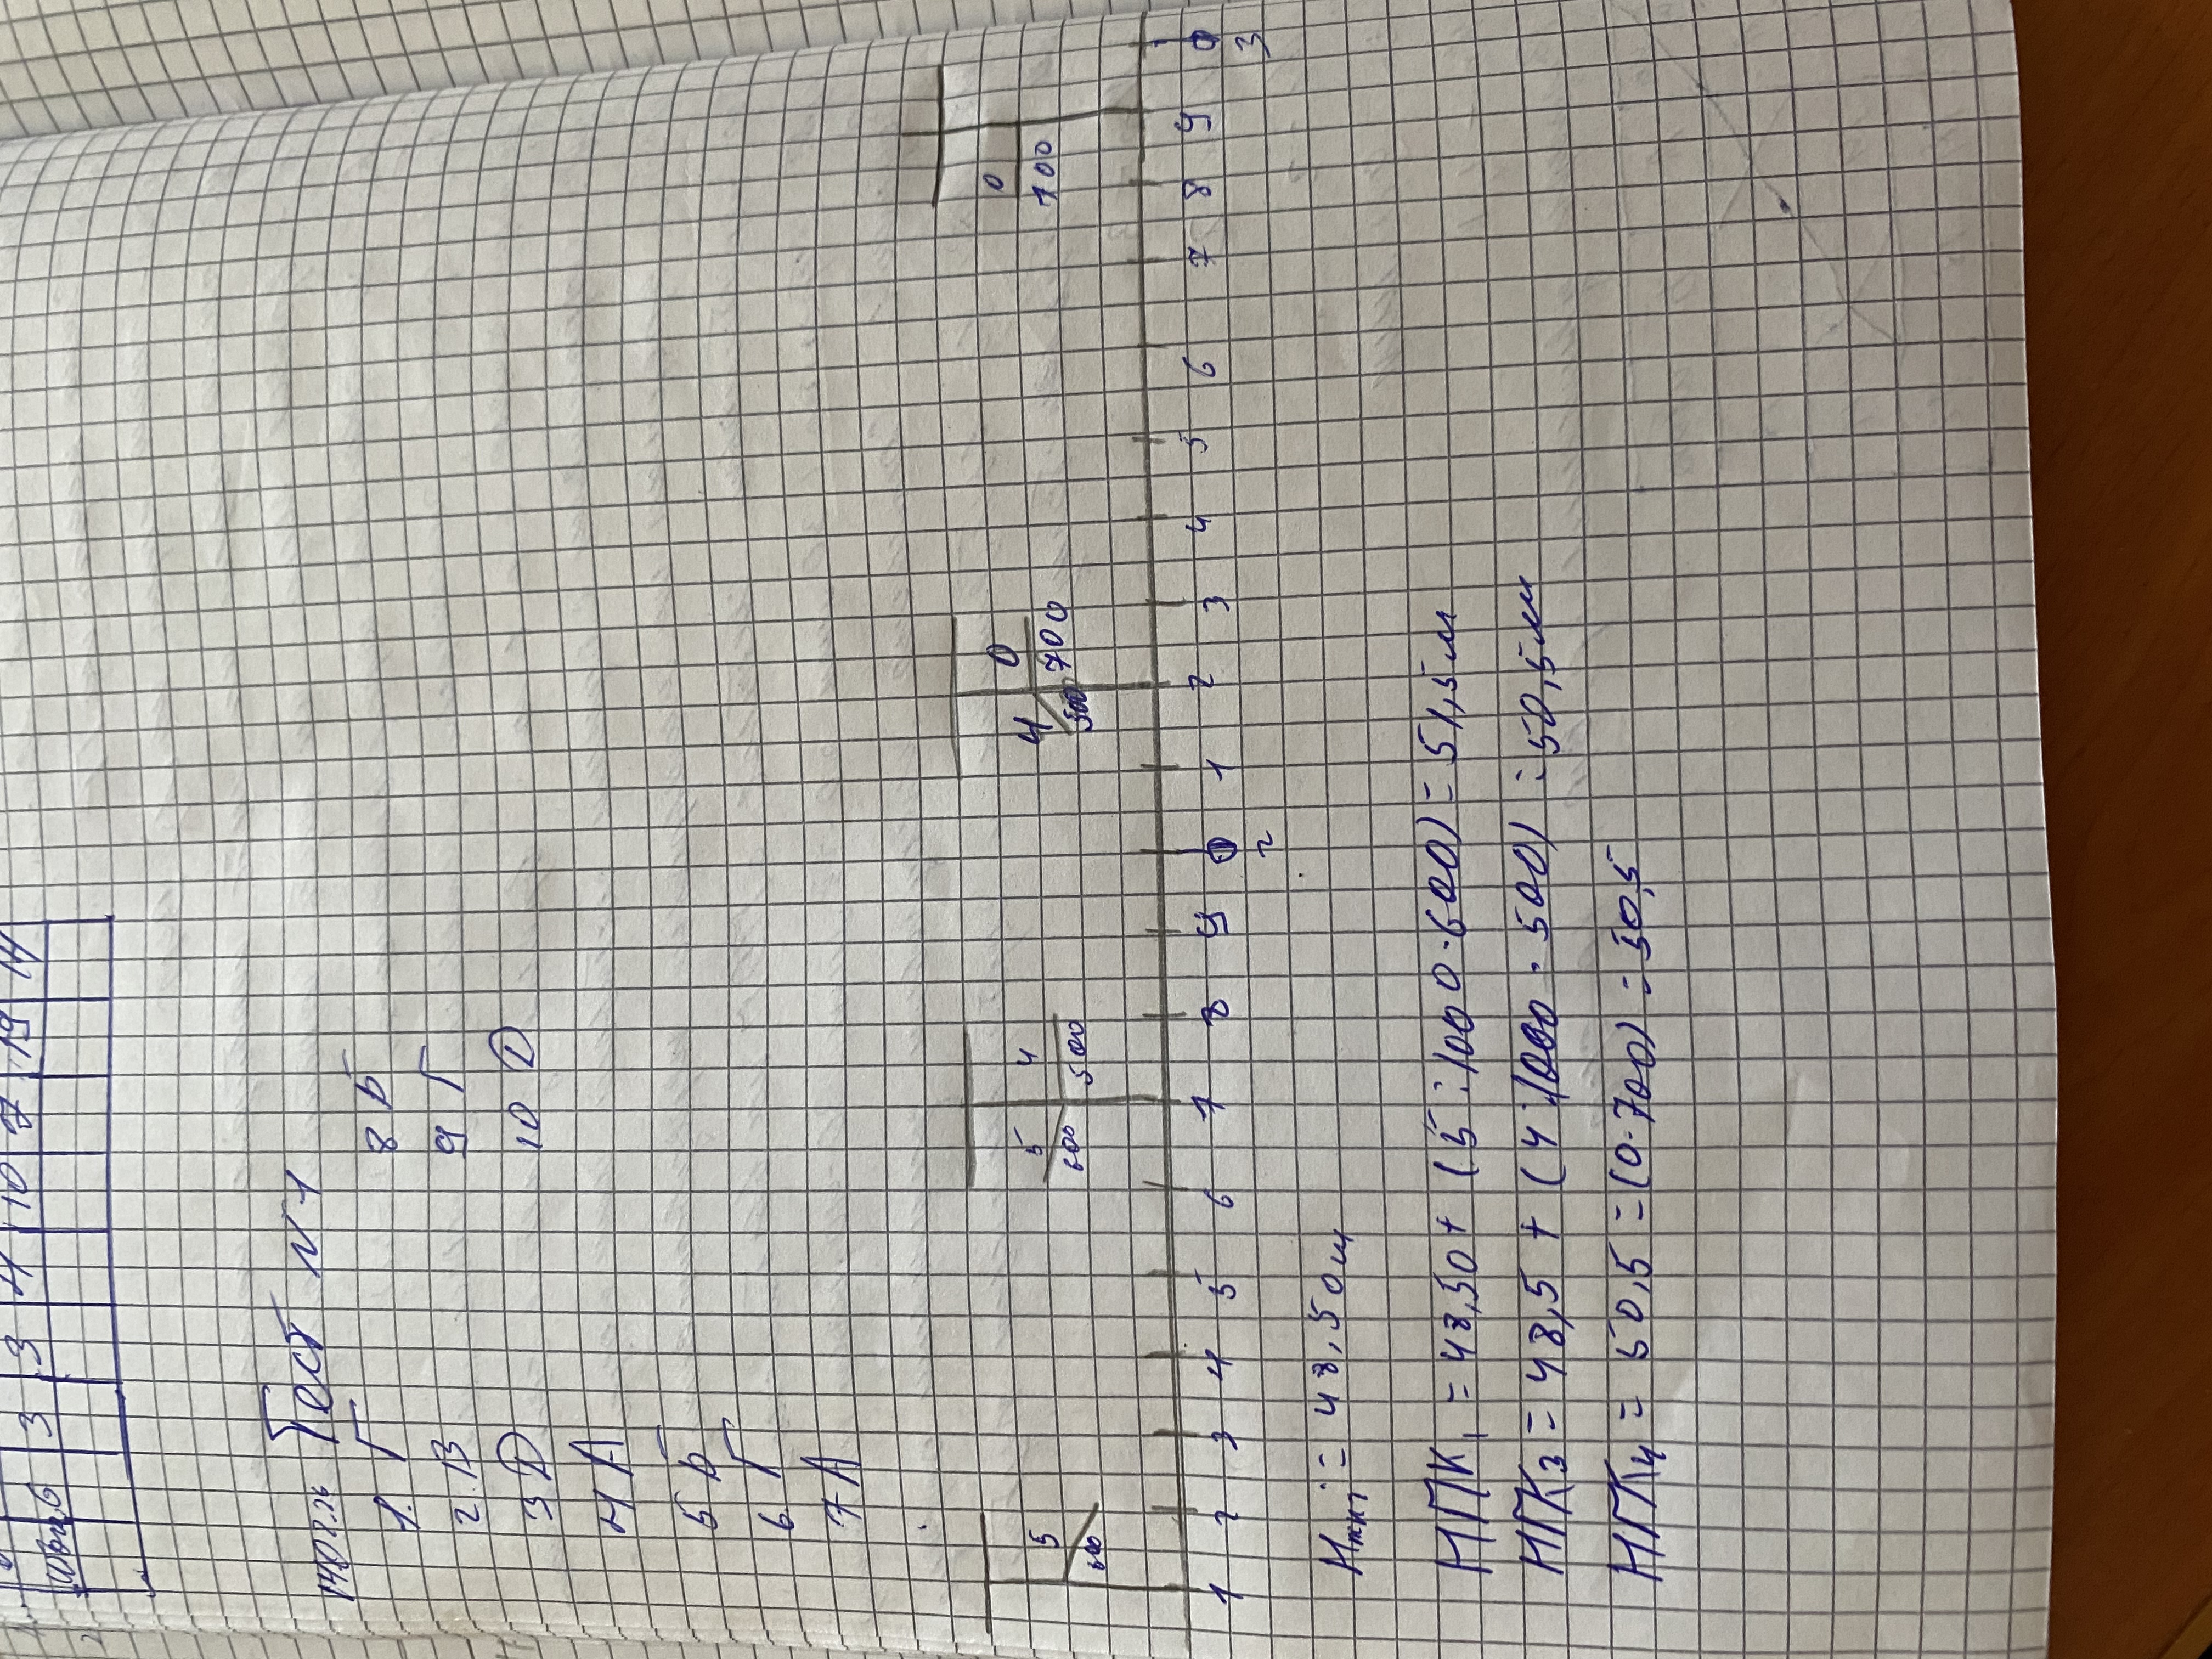 3 3 4 10 7 19 14
Тест №1
1. Г
2. В
3 D
4 А
5 Б
6. Г
7 А
8 Б
9 Г
10 D
5
600
5 4
600 500
4 0
500 700
0
100
1 2 3 4 5 6 7 8 9 0 1 2 3 4 5 6 7 8 9 0
2 3
= 48,50м
НПК1 = 48,50 + (5:1000·600) = 51,5м
НПК3 = 48,5 + (4:1000·500) = 50,5м
НПК4 = 50,5 = (0·700) = 50,5